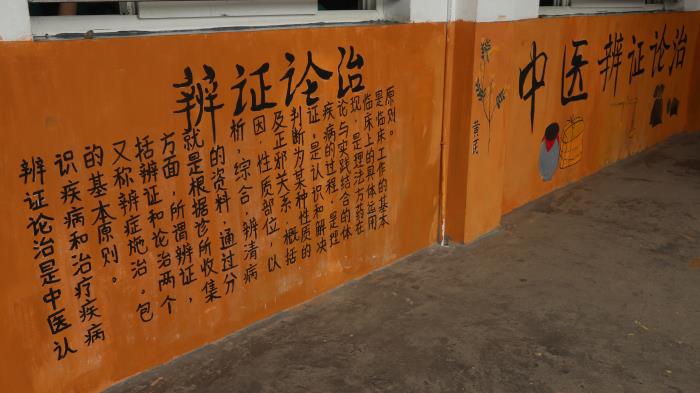 辨证论治
辨证论治是中医认
识疾病和治疗疾病
的基本原则。
又称辨症施治。包
括辨证和论治两个
方面,所谓辨证,
就是根据诊所收集
的资料,通过分
析,综合,辨清病
因,性质部位,以
及正邪关系,概括
判断为某种性质的
证,是认识和解决
疾病的过程,是理
论与实践结合的体
现,是理法方药在
临床上的具体运用
是临床工作的基本
原则。
中医辨证论治
黄芪